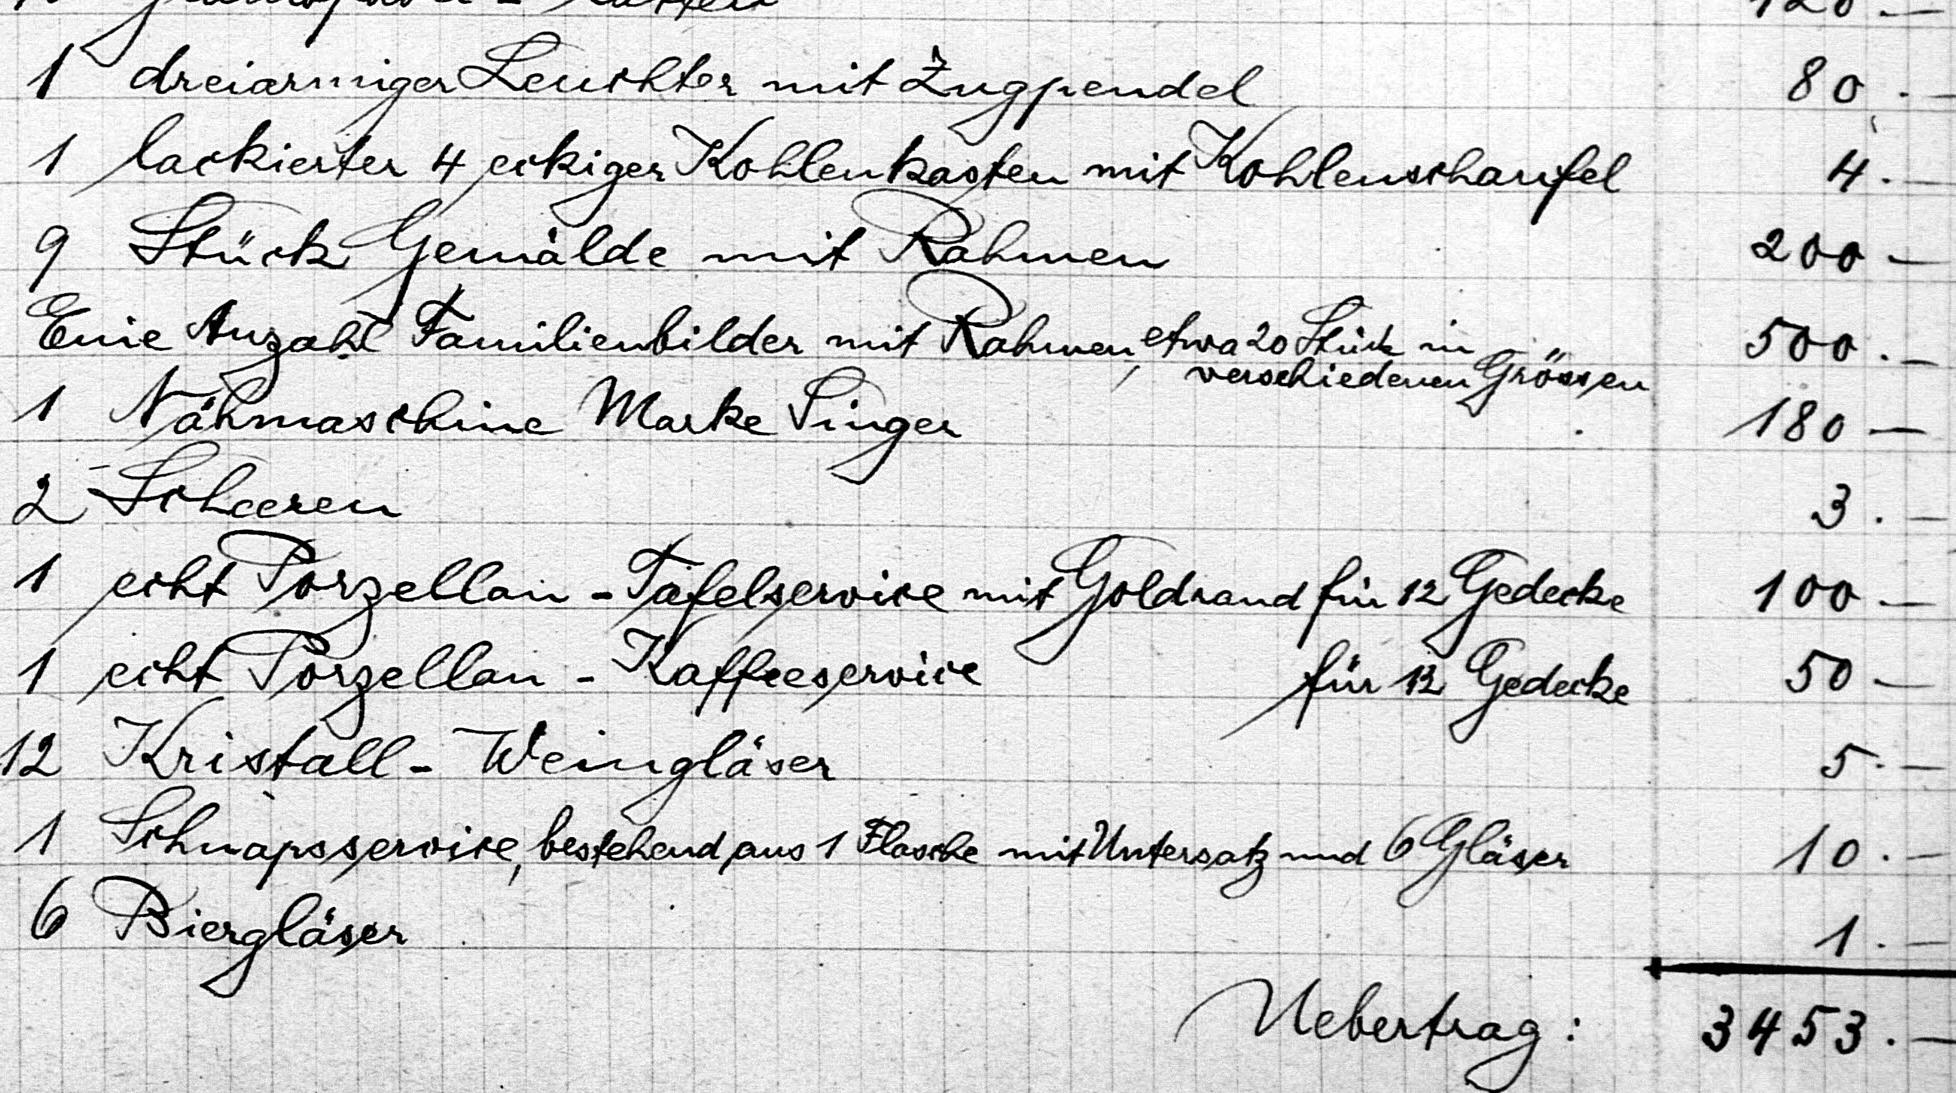 120.—
1 dreiarmiger Leuchter mit Zugpendel 80.—
1 lackierter 4 eckiger Kohlenkasten mit Kohlenschaufel 4.—
9 Stück Gemälde mit Rahmen 200—
Eine Anzahl Familienbilder mit Rahmen, etwa 20 Stück in 500.—
verschiedenen Grössen
1 Nähmaschine Marke Singer 180—
2 Scheeren 3.—
1 echt Porzellan-Tafelservice mit Goldrand für 12 Gedecke 100—
1 echt Porzellan-Kaffeeservice für 12 Gedecke 50—
12 Kristall-Weingläser 5.—
1 Schnapsservice, bestehend aus 1 Flasche mit Untersatz und 6 Gläser 10.—
6 Biergläser 1.—
Uebertrag: 3453.—